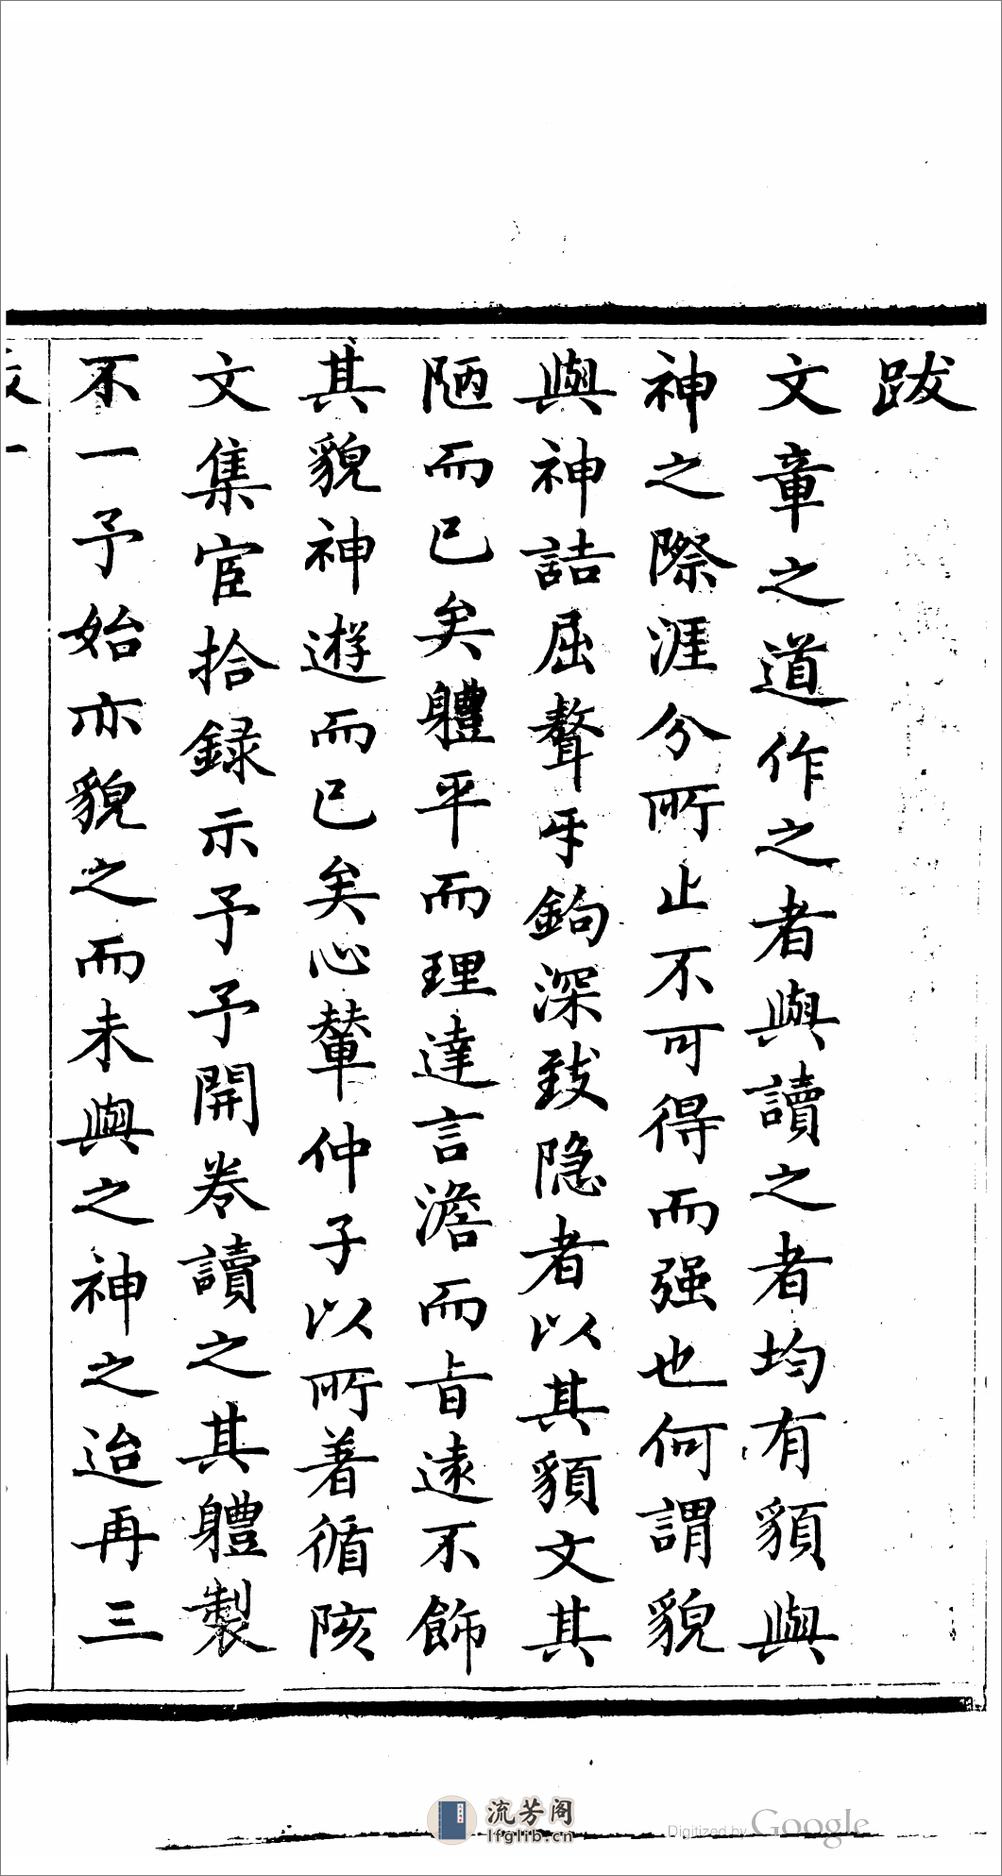 跋
文章之道作之者與讀之者均有貌與
神之際涯分所止不可得而强也何謂貌
與神詰屈聱牙鉤深致隐者以其貌文其
陋而已矣軆平而理達言澹而旨遠不飾
其貌神遊而已矣心輦仲子以所著循陔
文集宦拾録示予予開卷讀之其軆製
不一予始亦貌之而未與之神之迨再三
流芳阁
lfglib.cn
Digitized by Google